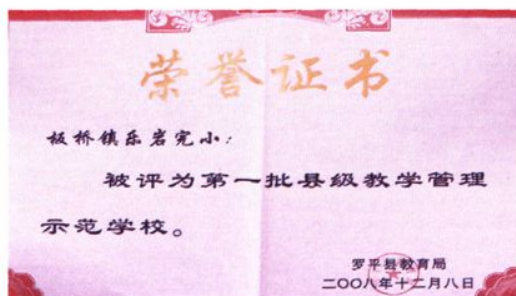 荣誉证书
板桥镇乐岩完小:
被评为第一批县级教学管理
示范学校。
罗平县教育局
二〇〇八年十二月八日